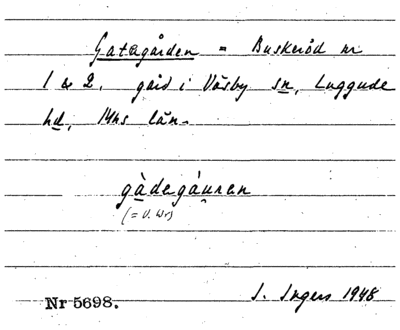 Gategården = Buskeröd nr
1 & 2, gård i Väsby sn, Luggude
hd, Mhs län.
gàdegáuran
(= U. W.)
Nr 5698.
I. Ingers 1948